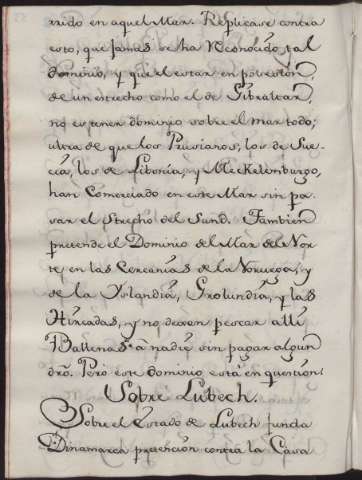 rrido en aquel Mar. Replicase contra
esto, que jamas se ha Reconocido tal
dominio, y que el estar en posesion
de un estrecho como el de Gibraltar,
no es tener dominio sobre el mar todo;
ultra de que los Prusianos, los de Sue-
cia, los de Libonia, y Meckelemburgo,
han Comerciado en este Mar sin pa-
sar el Strecho del Sund. Tambien
pretende el Dominio del Mar del Nor-
te, en las Cercanias de la Noruega, y
de la Yslandia, Grolundia, y las
Hircadas, y no dexan pescar alli
Ballenas a nadie sin pagar algun
dro. Pero este dominio está en question.
Sobre Lubech.
Sobre el Estado de Lubech funda
Dinamarca pretencion contra la Casa